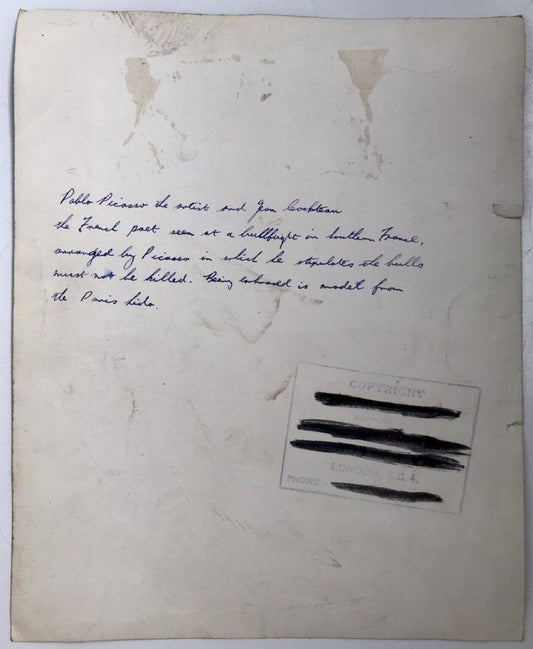 Pablo Picasso the artist and Jean Cockteau
the French poet seen at a bullfight in Southern France,
arranged by Picasso in which he stipulates the bulls
must not be killed. Being embraced is model from
the Paris Lido.
COPYRIGHT
LONDON, E.C.4.
PHONE:-